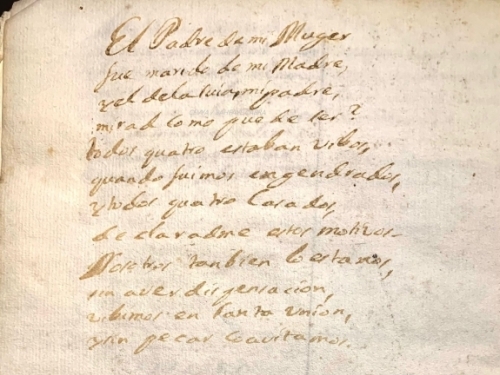 El Padre de mi Muger
fue marido de mi Madre,
y el dela suia, mi padre,
mirad como puede ser?
todos quatro estaban vibos,
quando fuimos engendrados,
y todos quatro Casados,
declaradme estos motivos.
Nosotros tanbien lo estamos,
sin aver dispensacion,
vibimos en tanta vnion,
y sin pecar coavitamos.